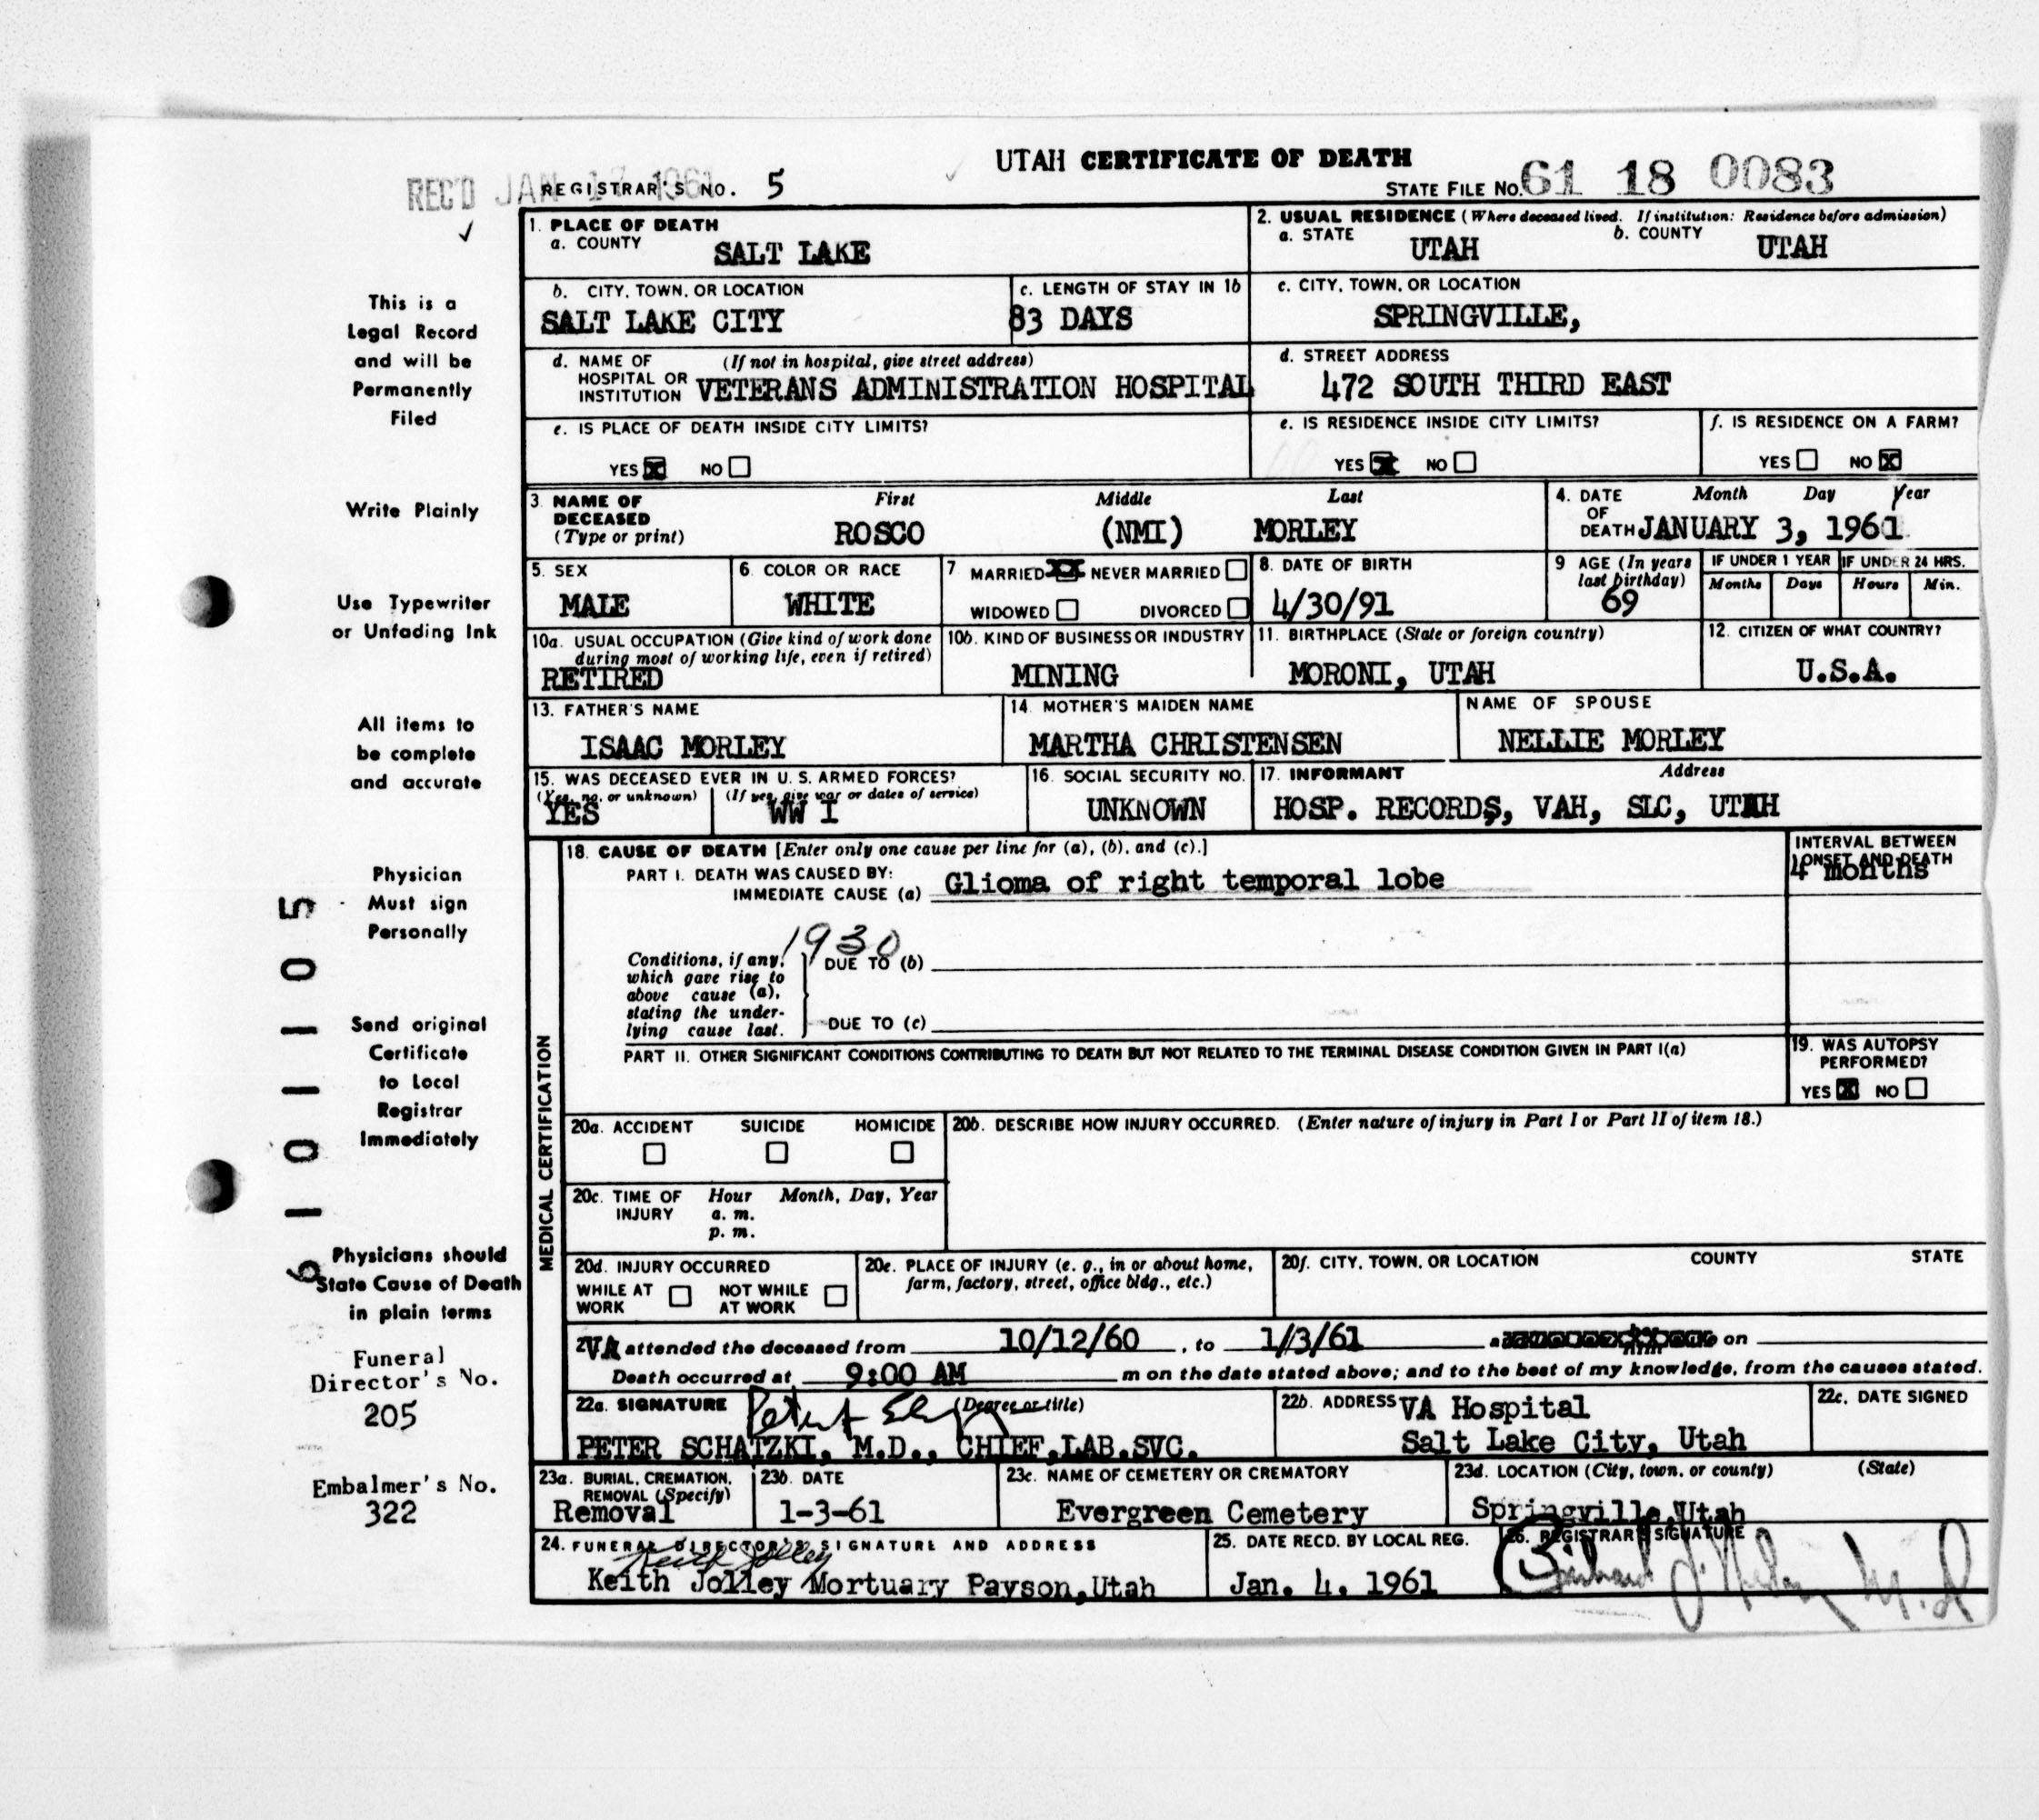 UTAH CERTIFICATE OF DEATH
REC'D JAN 17 1961
REGISTRAR'S NO. 5
STATE FILE NO. 61 18 0083
1. PLACE OF DEATH
a. COUNTY
SALT LAKE
2. USUAL RESIDENCE (Where deceased lived. If institution: Residence before admission)
a. STATE UTAH b. COUNTY UTAH
b. CITY, TOWN, OR LOCATION
SALT LAKE CITY
c. LENGTH OF STAY IN 1b
83 DAYS
c. CITY, TOWN, OR LOCATION
SPRINGVILLE,
d. NAME OF (If not in hospital, give street address)
HOSPITAL OR
INSTITUTION VETERANS ADMINISTRATION HOSPITAL
d. STREET ADDRESS
472 SOUTH THIRD EAST
e. IS PLACE OF DEATH INSIDE CITY LIMITS?
YES X NO
e. IS RESIDENCE INSIDE CITY LIMITS?
YES X NO
f. IS RESIDENCE ON A FARM?
YES NO X
3. NAME OF DECEASED (Type or print)
First Middle Last
ROSCO (NMI) MORLEY
4. DATE OF DEATH Month Day Year
JANUARY 3, 1961
5. SEX
MALE
6. COLOR OR RACE
WHITE
7 MARRIED XX NEVER MARRIED
WIDOWED DIVORCED
8. DATE OF BIRTH
4/30/91
9 AGE (In years last birthday)
69
IF UNDER 1 YEAR IF UNDER 24 HRS.
Months Days Hours Min.
10a. USUAL OCCUPATION (Give kind of work done
during most of working life, even if retired)
RETIRED
10b. KIND OF BUSINESS OR INDUSTRY
MINING
11. BIRTHPLACE (State or foreign country)
MORONI, UTAH
12. CITIZEN OF WHAT COUNTRY?
U.S.A.
13. FATHER'S NAME
ISAAC MORLEY
14. MOTHER'S MAIDEN NAME
MARTHA CHRISTENSEN
NAME OF SPOUSE
NELLIE MORLEY
15. WAS DECEASED EVER IN U. S. ARMED FORCES?
(Yes, no, or unknown) (If yes, give war or dates of service)
YES WW I
16. SOCIAL SECURITY NO.
UNKNOWN
17. INFORMANT Address
HOSP. RECORDS, VAH, SLC, UTAH
MEDICAL CERTIFICATION
18. CAUSE OF DEATH [Enter only one cause per line for (a), (b), and (c).]
PART I. DEATH WAS CAUSED BY:
IMMEDIATE CAUSE (a) Glioma of right temporal lobe
INTERVAL BETWEEN
ONSET AND DEATH
4 months
1930
Conditions, if any,
which gave rise to
above cause (a),
stating the under-
lying cause last.
DUE TO (b)
DUE TO (c)
PART II. OTHER SIGNIFICANT CONDITIONS CONTRIBUTING TO DEATH BUT NOT RELATED TO THE TERMINAL DISEASE CONDITION GIVEN IN PART I(a)
19. WAS AUTOPSY
PERFORMED?
YES X NO
20a. ACCIDENT SUICIDE HOMICIDE
20b. DESCRIBE HOW INJURY OCCURRED. (Enter nature of injury in Part I or Part II of item 18.)
20c. TIME OF INJURY Hour Month, Day, Year
a. m.
p. m.
20d. INJURY OCCURRED
WHILE AT WORK NOT WHILE AT WORK
20e. PLACE OF INJURY (e. g., in or about home,
farm, factory, street, office bldg., etc.)
20f. CITY, TOWN, OR LOCATION COUNTY STATE
VA attended the deceased from 10/12/60, to 1/3/61 on
Death occurred at 9:00 AM m on the date stated above; and to the best of my knowledge, from the causes stated.
22a. SIGNATURE (Degree or title)
PETER SCHATZKI, M.D., CHIEF,LAB.SVC.
22b. ADDRESS VA Hospital
Salt Lake City, Utah
22c. DATE SIGNED
23a. BURIAL, CREMATION,
REMOVAL (Specify)
Removal
23b. DATE
1-3-61
23c. NAME OF CEMETERY OR CREMATORY
Evergreen Cemetery
23d. LOCATION (City, town, or county) (State)
Springville,Utah
24. FUNERAL DIRECTOR'S SIGNATURE AND ADDRESS
Keith Jolley
Keith Jolley Mortuary Payson,Utah
25. DATE RECD. BY LOCAL REG.
Jan. 4, 1961
26. REGISTRAR'S SIGNATURE
This is a
Legal Record
and will be
Permanently
Filed
Write Plainly
Use Typewriter
or Unfading Ink
All items to
be complete
and accurate
Physician
Must sign
Personally
Send original
Certificate
to Local
Registrar
Immediately
Physicians should
State Cause of Death
in plain terms
Funeral
Director's No.
205
Embalmer's No.
322